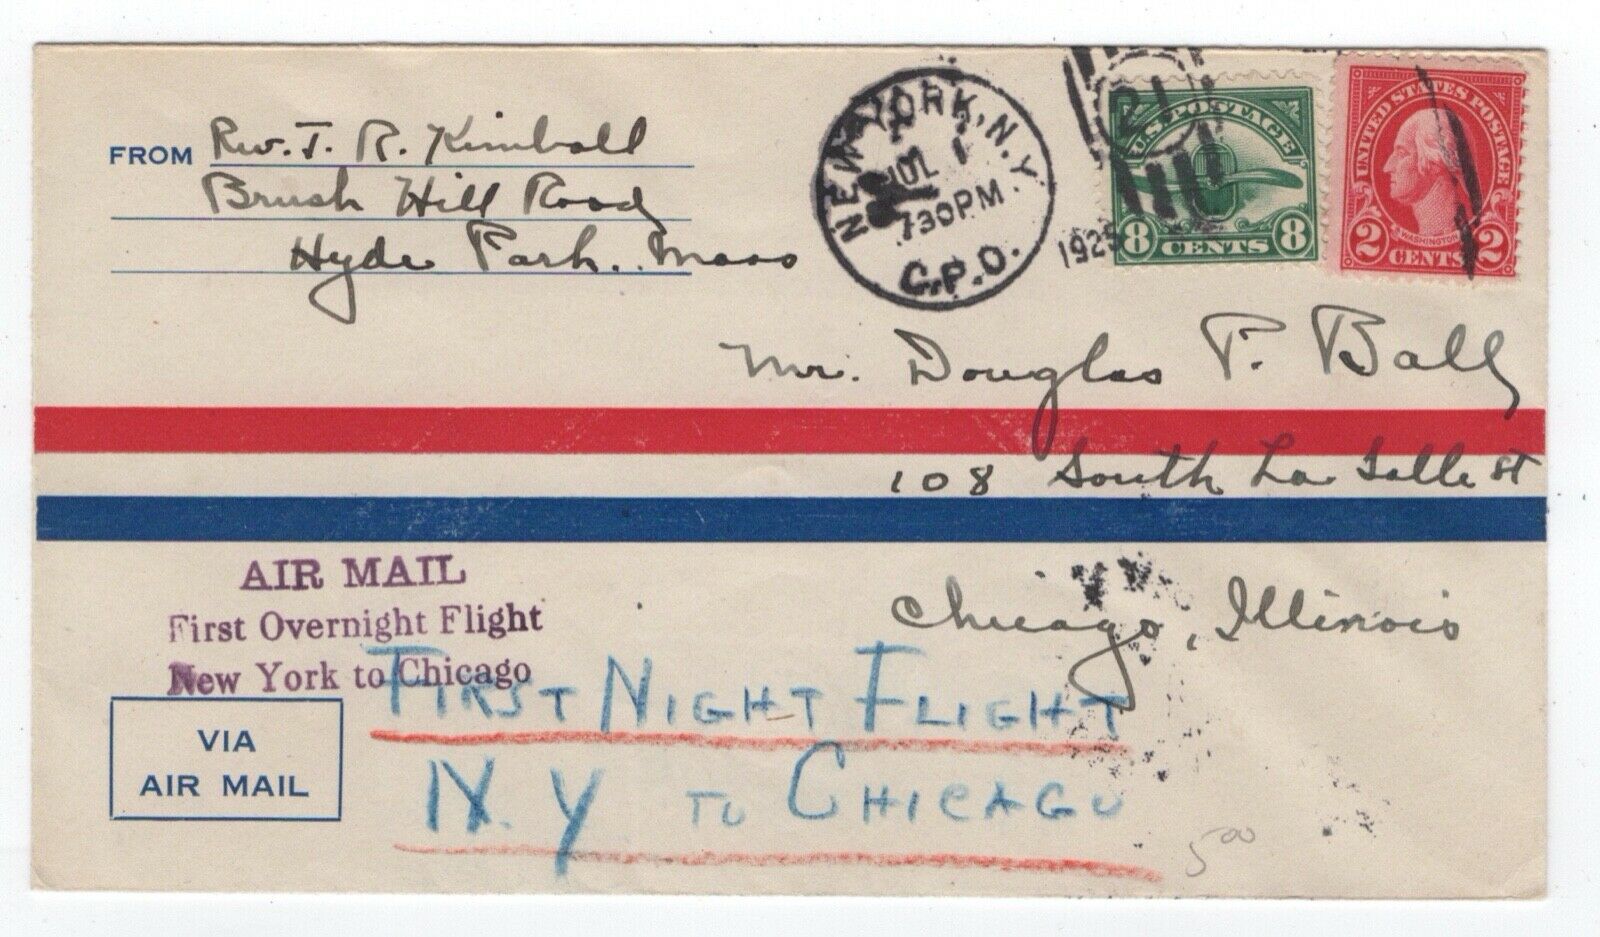 FROM Rev. J. R. Kimball
Brush Hill Road
Hyde Park. Mass
NEW YORK, N.Y.
JUL 1
730PM
1925
G.P.O.
21
U.S. POSTAGE
8 CENTS 8
UNITED STATES POSTAGE
WASHINGTON
2 CENTS 2
Mr. Douglas P. Ball
108 South La Salle St
Chicago, Illinois
AIR MAIL
First Overnight Flight
New York to Chicago
VIA
AIR MAIL
FIRST NIGHT FLIGHT
N.Y TO CHICAGO
5 00